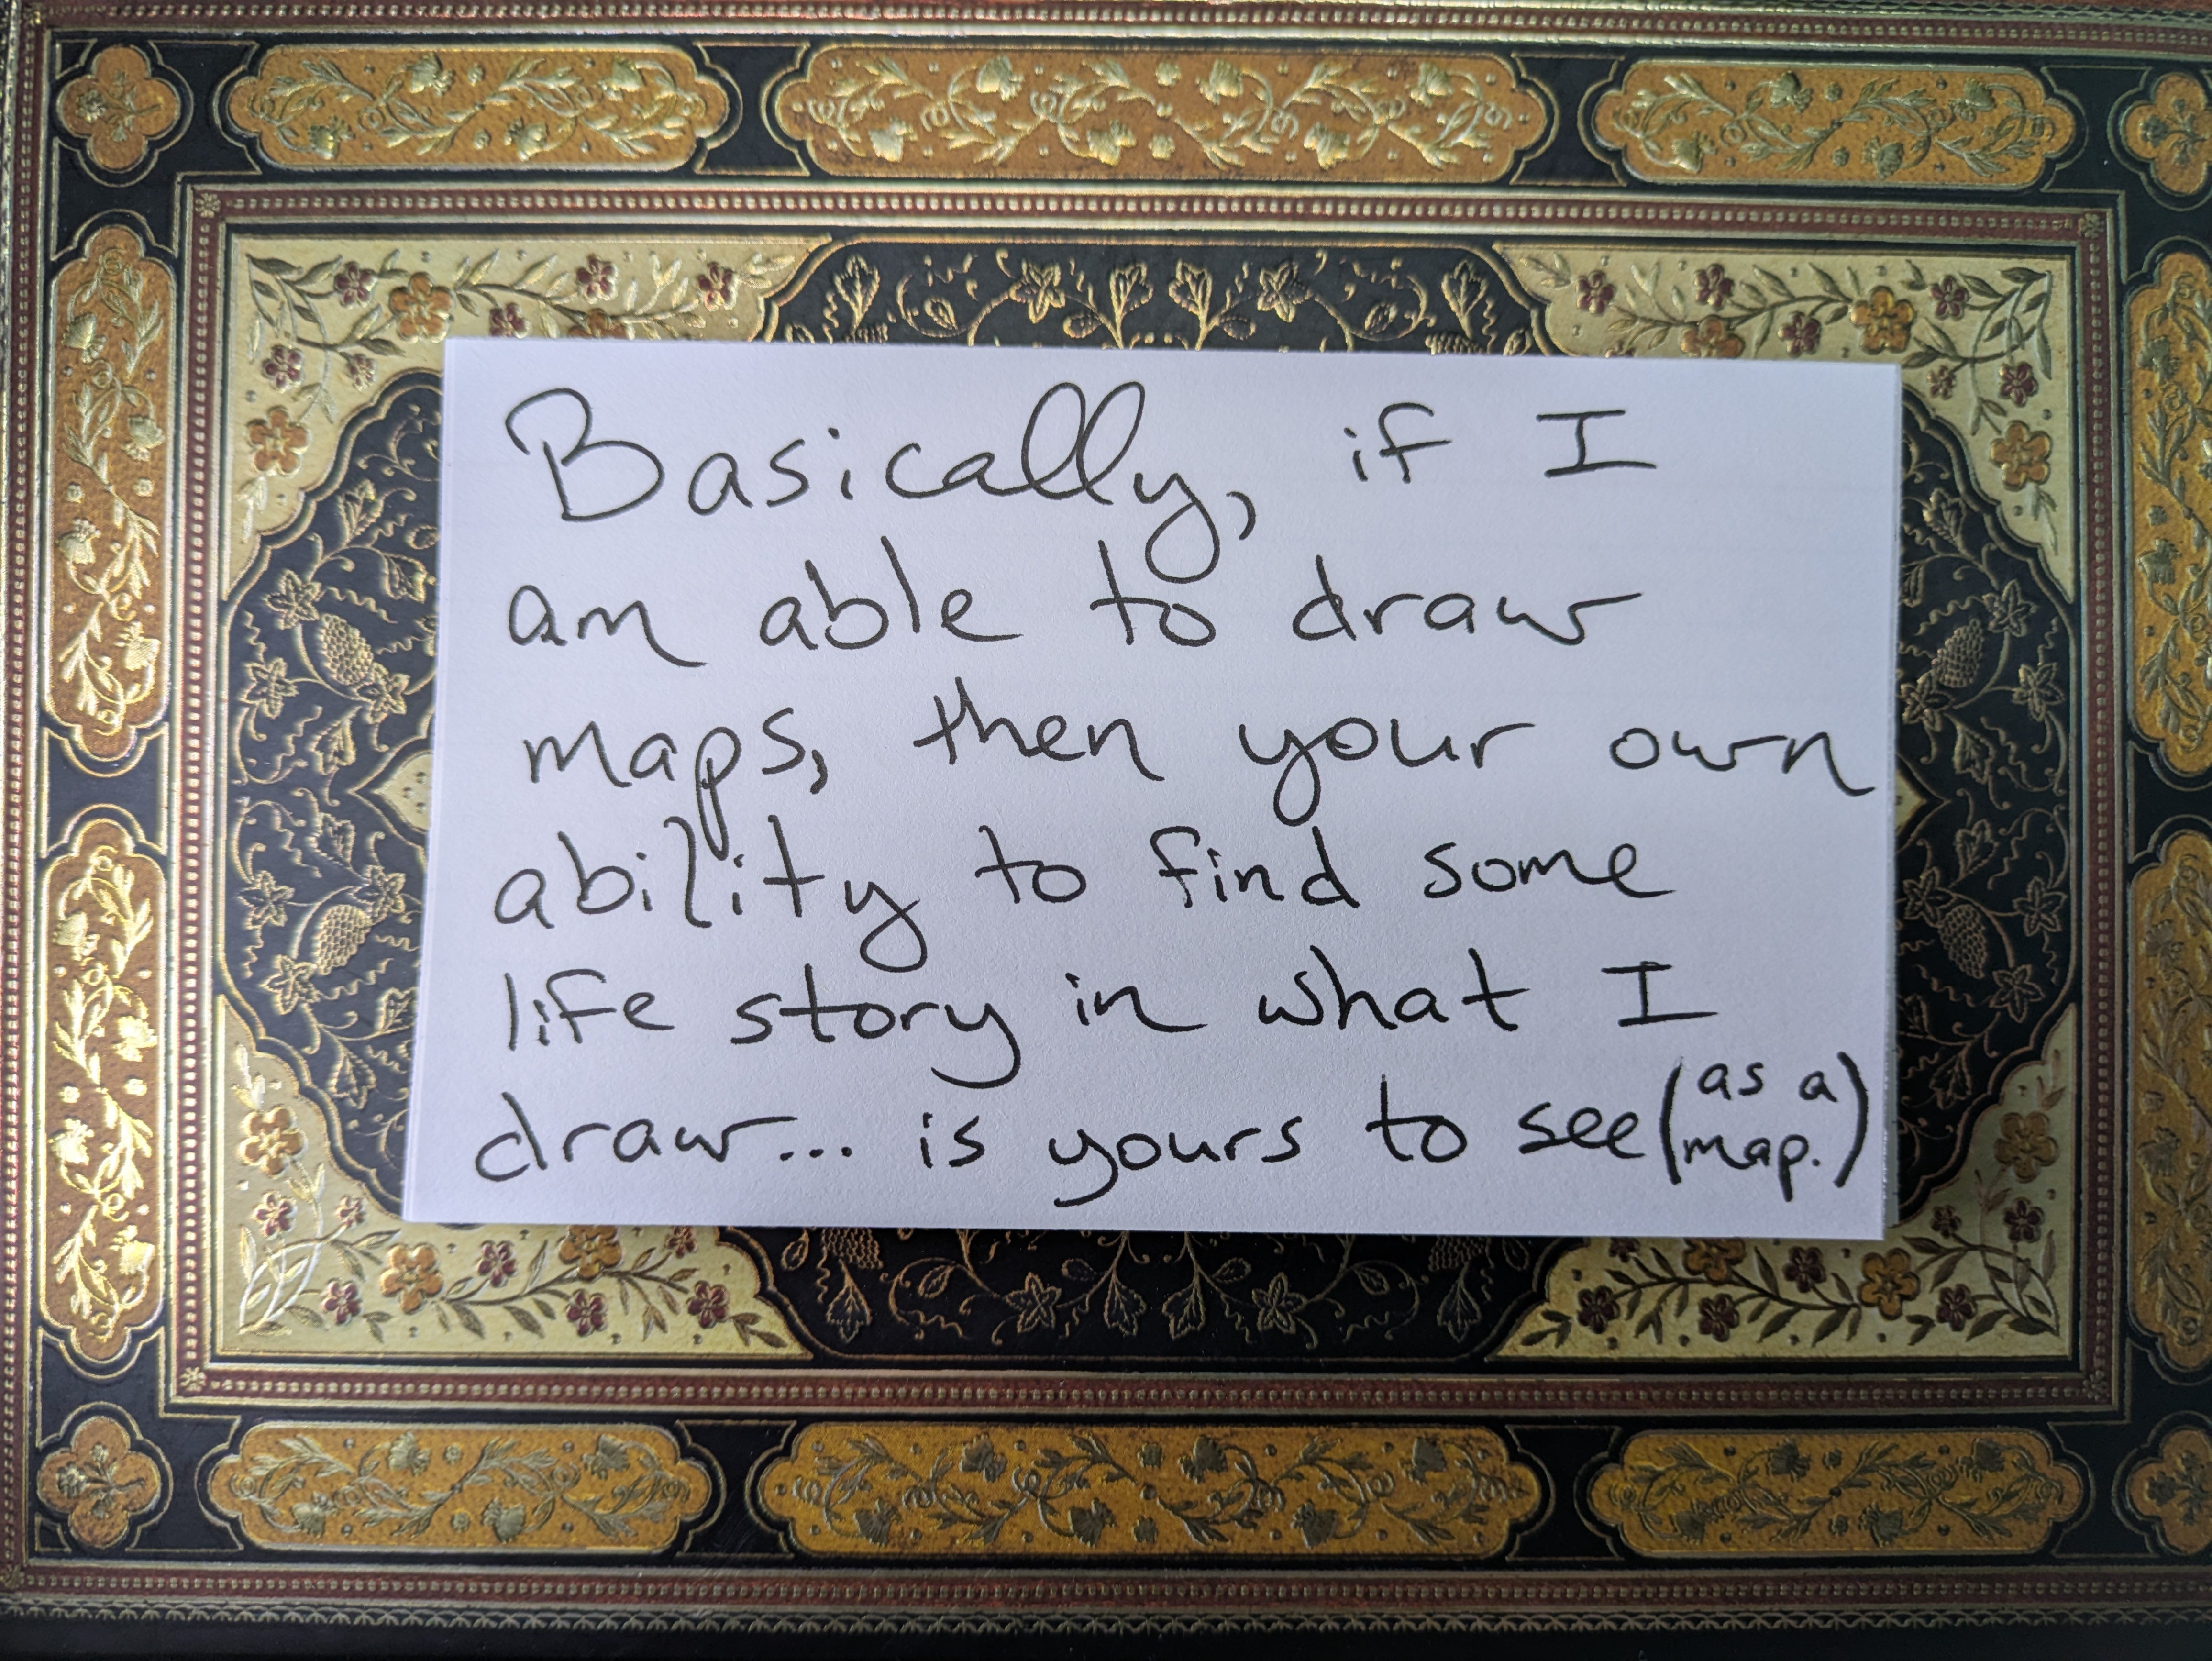 Basically, if I
am able to draw
maps, then your own
ability to find some
life story in what I
draw... is yours to see (as a
map.)